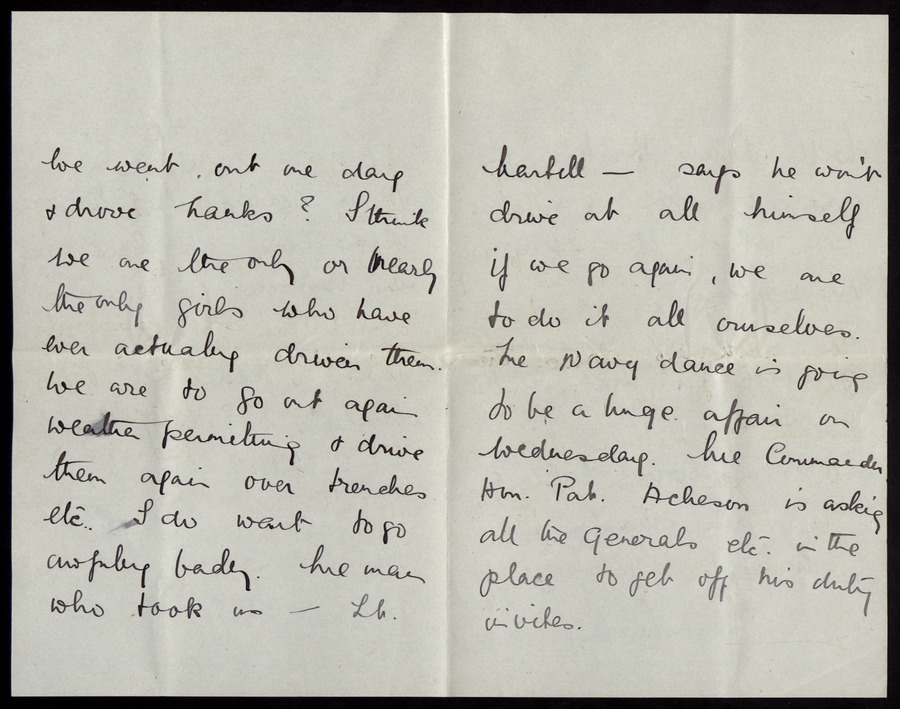 We went out one day
& drove Tanks? I think
we are the only or nearly
the only girls who have
ever actually driven them.
We are to go out again
weather permitting & drive
them again over trenches
etc. I do want to go
awfully badly. The man
who took us — Lt.
Martell — says he won't
drive at all himself
if we go again, we are
to do it all ourselves.
The Navy dance is going
to be a huge affair on
Wednesday. The Commander
Hon. Pat. Acheson is asking
all the Generals etc. in the
place to get off his duty
invites.